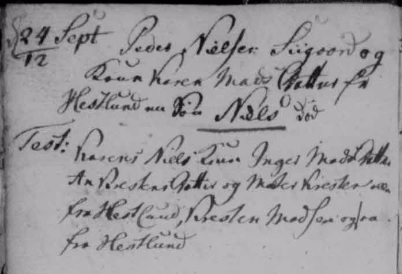 24 Sept Peder Nielsen Siigoord og
12
Kone Karen Mads Dotter fra
Hestlund en Søn Niels død
Test: Karens Niels Kone Inger Mads Datter
An Kirstens Dotter og Mater Kirstens
fra Hestlund, Kresten Madsen og
fra Hestlund